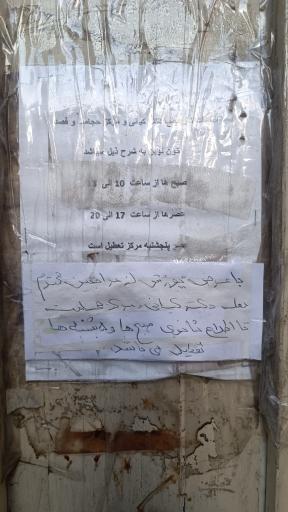 کیانی و مرکز حجامت و فصد
خون نوین به شرح ذیل میباشد
صبح ها از ساعت 10 الی 13
عصرها از ساعت 17 الی 20
عصر پنجشنبه مرکز تعطیل است
با عرض پوزش از مراجعین محترم
دکتر کیانی مرکز
تا اطلاع ثانوی صبح ها و پنجشنبه ها
تعطیل می باشد